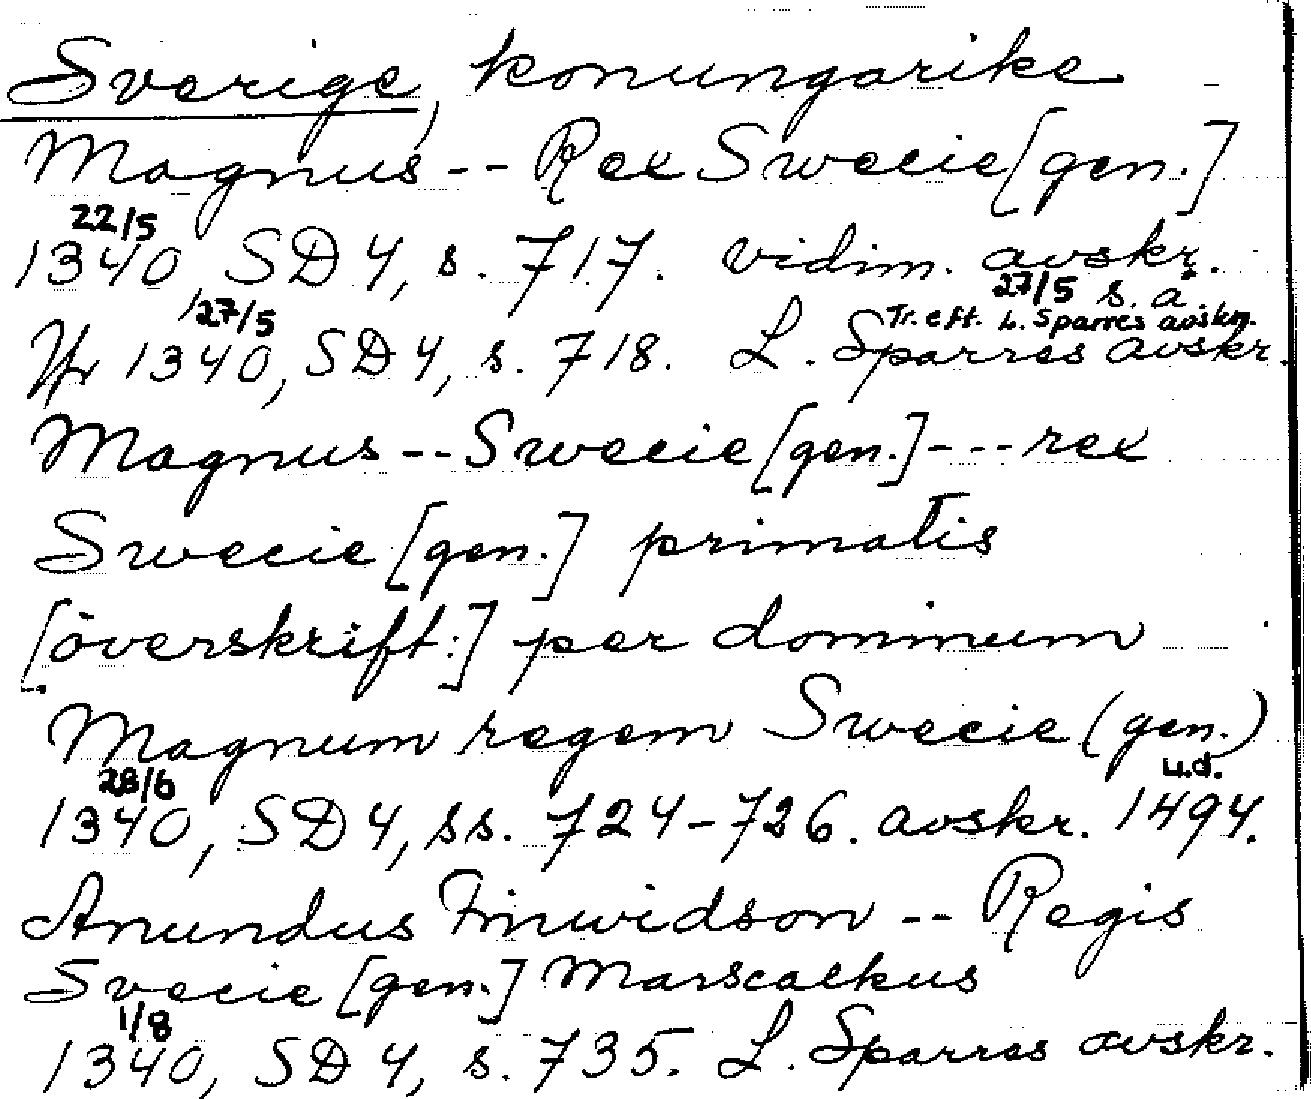 Sverige, konungarike
Magnus -- Rex Swecie [gen.]
22/5
1340, SD 4, s. 717. vidim. avskr.
27/5 s. å.
27/5 Tr. eft. L. Sparres avskr.
Jfr 1340, SD 4, s. 718. L. Sparres avskr.
Magnus -- Swecie [gen.] --- rex
Swecie [gen.] primatis
[överskrift:] per dominum
Magnum regem Swecie (gen.)
28/6 u.d.
1340, SD 4, ss. 724-726. avskr. 1494.
Anundus Finwidson -- Regis
Svecie [gen.] Marscalkus
1/8
1340, SD 4, s. 735. L. Sparres avskr.